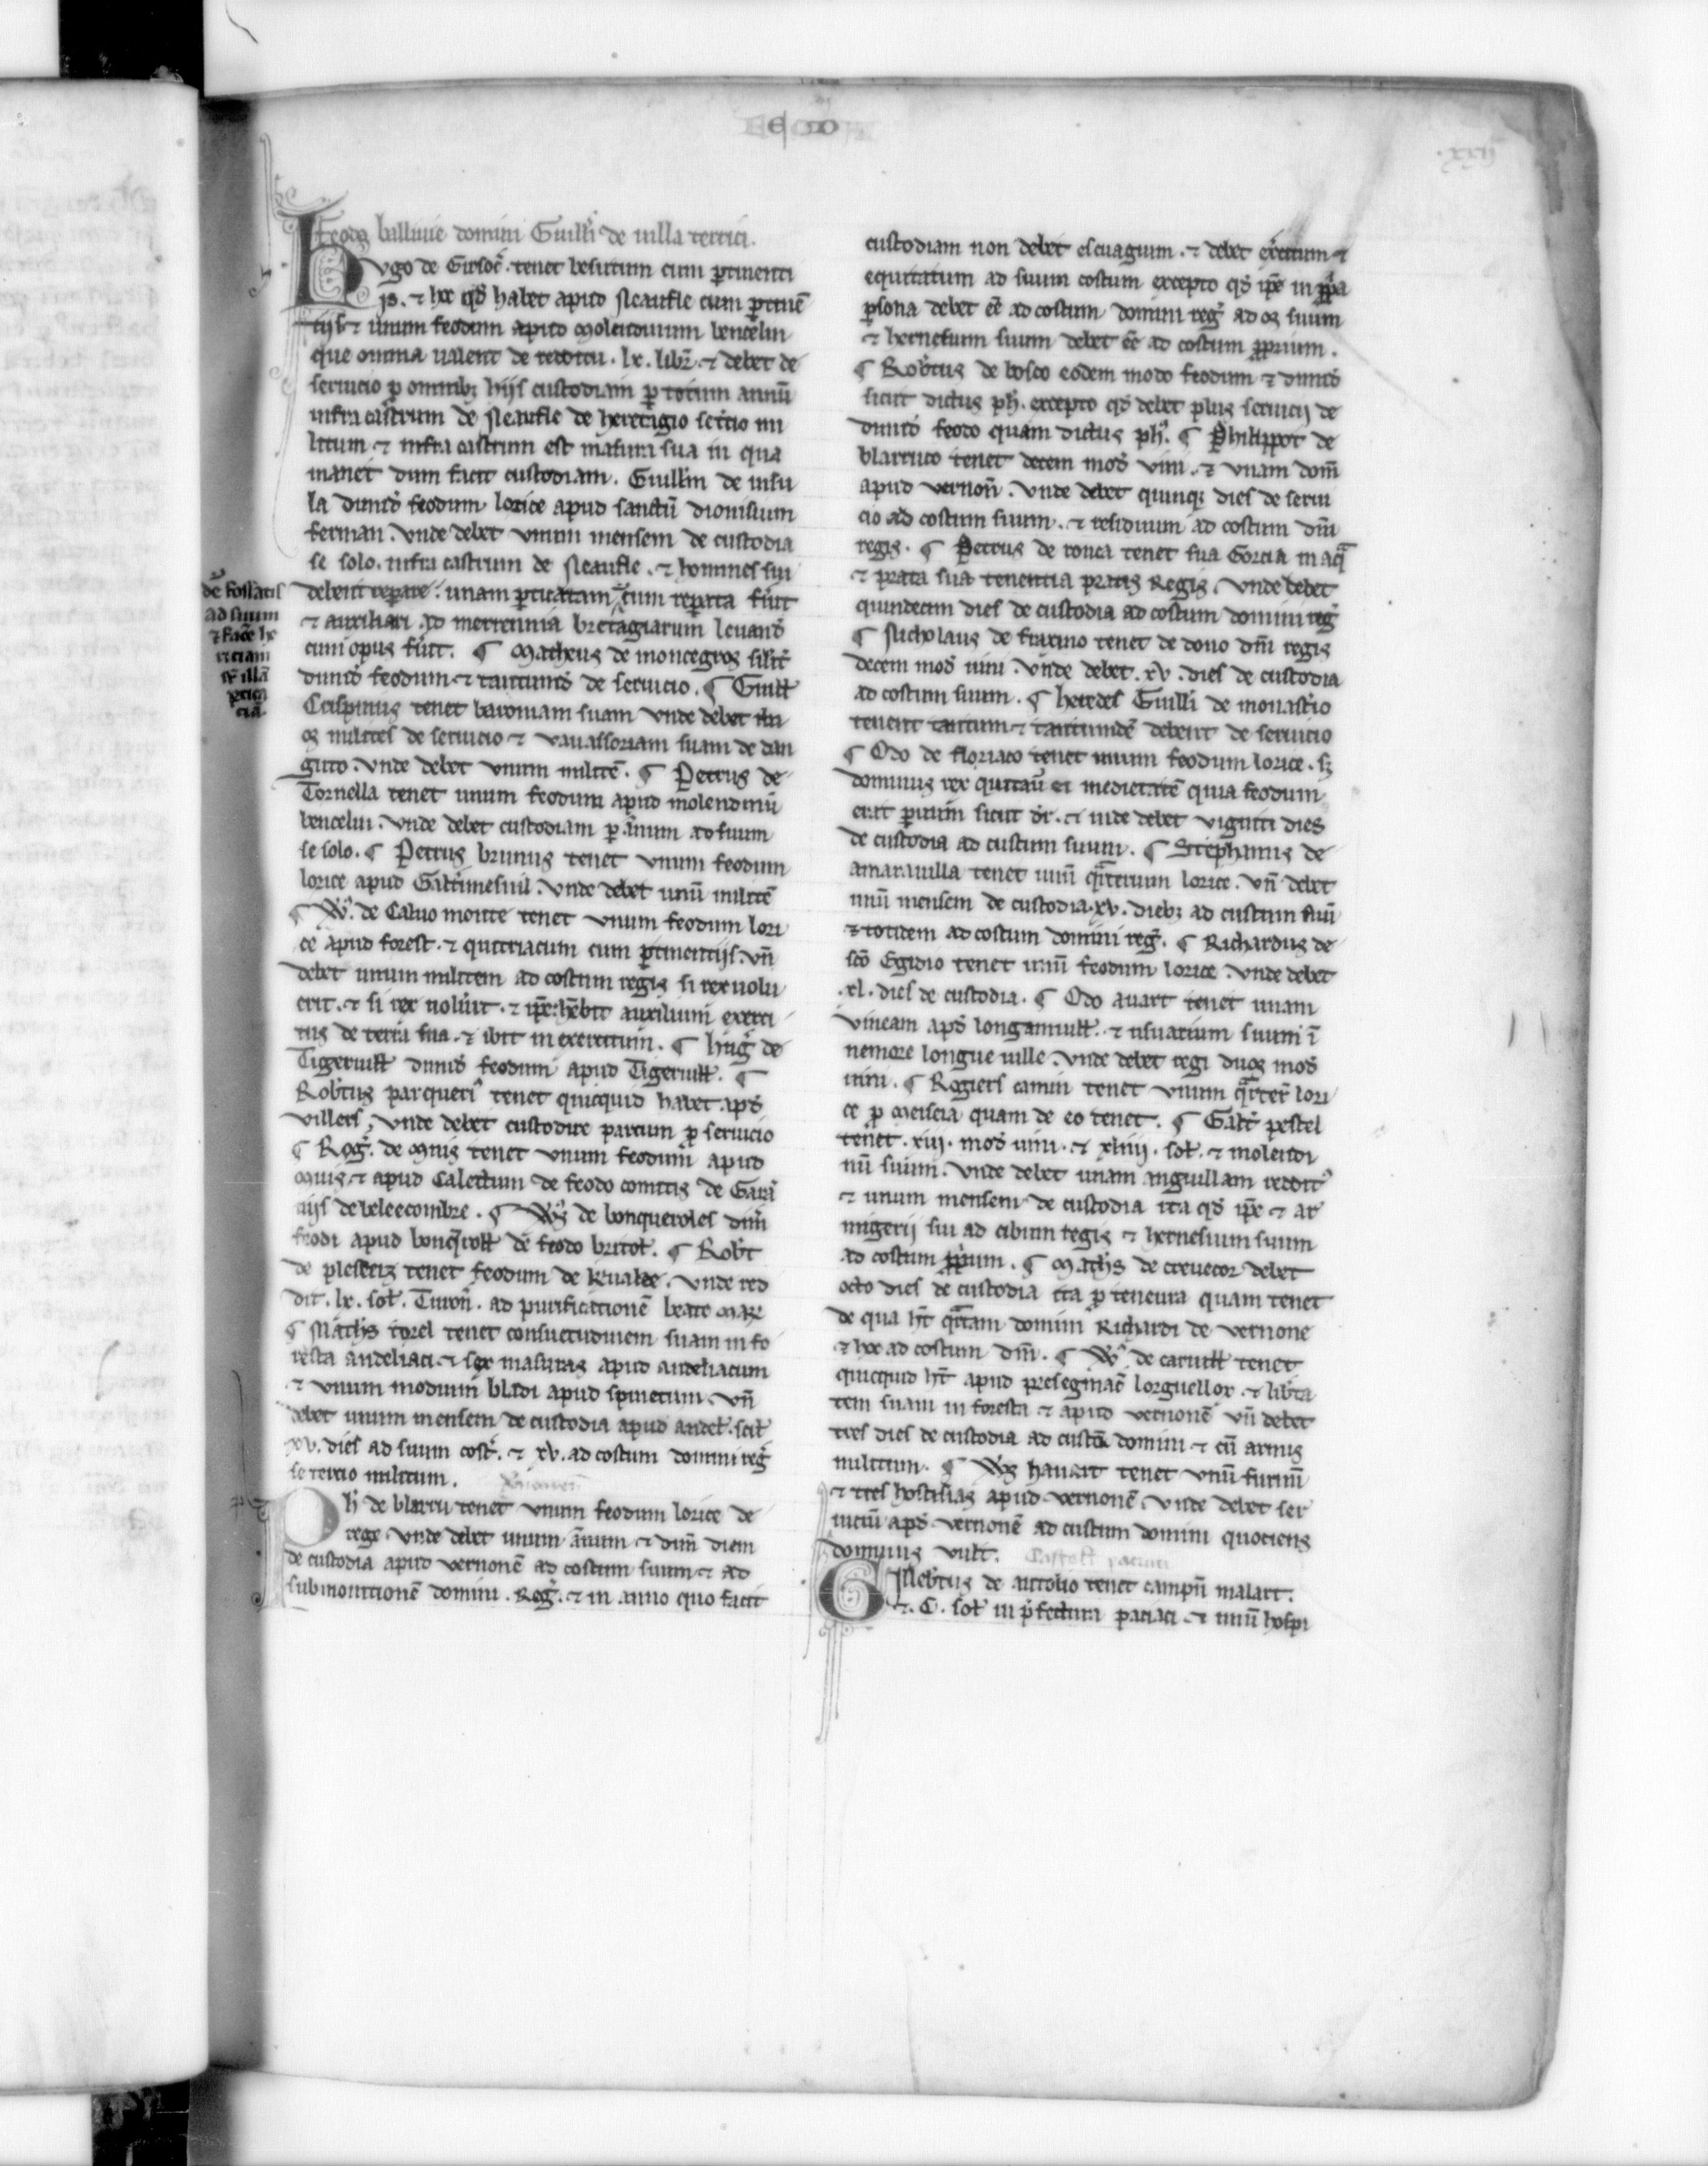 FEODA
.xxij
feoda ballivie domini Guill'i de villa terrici.
Hugo de Gisoʳc̄. tenet besutium cum p̱tinenti
js. ⁊ hoc qd̄ habet apud Neaufle cum p̱tinē
tiis ⁊ unum feodum apud Molendinum bencelin
que omnia valent de redditu. lx. libr̄. ⁊ debet de
servicio p̱ omnibꝫ hijs custodiam p̱ totum annū
infra castrum de Neaufle de herbergagio se t͛cio mi
litum ⁊ infra castrum est masura sua in qua
manet dum facit custodiam. Guill'm de insu
la dimid̄ feodum lorice apud sanctū dionisium
ferman. vnde debet unum mensem de custodia
se solo. infra castrum de Neaufle. ⁊ homines sui
debent rep̱are unam p̱ticatam cum rep̱ata fūit
⁊ auxiliari ad merrennia bretagiarum levand̄
cum opus fūit. ¶ Matheus de montegroꝫ silit͛
dimid̄ feodum ⁊ tantumd̄ de servicio. ¶ Guill
Crispinus tenet baroniam suam vnde debet du
os milites de servicio ⁊ vavassoriam suam de dan
guto. vnde debet vnum militē. ¶ Petrus de
Tornella tenet unum feodum apud molendinū
bencelin. vnde debet custodiam p̱ annum ad suum
se solo. ¶ Petrus brunus tenet vnum feodum
lorice apud Galt͛imesnil. vnde debet unū militē
¶ W͛. de Calvo monte tenet vnum feodum lori
ce apud forest. ⁊ quitriacum cum p̱tinentijs. vn̄
debet unum militem ad costum regis si rex volu
erit. ⁊ si rex noluit. ⁊ ip̄e hēbit auxilium exerci
tus de terra sua. ⁊ ibit in exercitum. ¶ Hug͛ de
Tigervill dimid̄ feodum apud Tigervill. ¶
Rob̄tus parqueri͛ tenet quicquid habet apd̄
villers, vnde debet custodire parcum p̱ servicio
¶ Rog͛. de Mnis tenet vnum feodum apud
Muis ⁊ apud Caletum de feodo comitis de Gara
niis de beleecombre. ¶ W͛s de bonqueroles dim̄
feodi apud bonq̄roll de feodo britol. ¶ Rob̄t
de plesseiz tenet feodum de kualde. vnde red
dit. lx. sol. Turon̄. ad purificationē beate Mar͛
¶ Math͛s torel tenet consuetudinem suam in fo
resta andeliaci. ⁊ sex masuras apud andeliacum
⁊ vnum modium bladi apud spinetum. vn̄
debet unum mensem de custodia apud andel. scil
xv. dies ad suum cost͛. ⁊ xv. ad costum domini reg͛
se tercio militum.
Ph͛ de blarru tenet vnum feodum lorice de
rege. vnde debet unum annum ⁊ dim̄ diem
de custodia apud vernonē ad costum suum ⁊ ad
submonitionē domini. Reg͛. ⁊ in anno quo facit
de fossatis
ad suum
⁊ facē he
riciam
sr͛ illā
p̱tica
tā
custodiam non debet escuagium. ⁊ debet ex͛citum ⁊
equitatum ad suum costum excepto qd̄ ip̄e in p̱p̱a
p̱sona debet eē ad costum domini reg͛ ad os suum
⁊ hernesium suum debet eē ad costum p̱p̱rium.
¶ Rob̄tus de bosco eodem modo feodum ⁊ dimid̄
sicut dictus ph͛. excepto qd̄ debet plus servicij de
dimid̄ feodo quam dictus ph͛. ¶ Philippot de
blarruco tenet decem mod̄ vini. ⁊ vnam dom̄
apud vernon̄. Vnde debet quinqꝫ dies de servi
cio ad costum suum. ⁊ residuum ad costum dn̄i
regis. ¶ Petrus de ronca tenet sua Gorcia in aq̄
⁊ prata sua tenentia pratis Regis. Vnde debet
quindecim dies de custodia ad costum domini reg͛
¶ Nicholaus de fraxino tenet de dono dn̄i regis
decem mod̄ vini. Vnde debet. xv. dies de custodia
ad costum suum. ¶ heredes Guill'i de monast͛io
tenent tantum ⁊ tantumdē debent de servicio
¶ Odo de floriaco tenet unum feodum lorice. sꝫ
dominus rex quitavit ei medietatē quia feodum
erat p̱vum sicut dr͛. ⁊ inde debet viginti dies
de custodia ad custum suum. ¶ Stephanus de
amaravilla tenet unū q̄rterium lorice. vn̄ debet
unū mensem de custodia. xv. diebꝫ ad custum suū
⁊ totidem ad costum domini reg͛. ¶ Richardus de
sc̄o Egidio tenet unū feodum lorice. vnde debet
.xl. dies de custodia. ¶ Odo avart tenet unam
vineam apd̄ longamvill. ⁊ usuarium suum ī
nemore longue ville. Vnde debet regi duos mod̄
vini. ¶ Rogiers camin tenet vnum q̄rter̄ lori
ce p̱ Meiseia quam de eo tenet. ¶ Galt͛ pestel
tenet. xiij. mod̄ vini. ⁊ xliiij. sol. ⁊ molendi
nū suum. Vnde debet unam anguillam reddit͛
⁊ unum mensem de custodia ita qd̄ ip̄e ⁊ ar
migerij sui ad cibum regis ⁊ hernesium suum
ad costum p̱p̱rium. ¶ Math͛s de crevecor debet
octo dies de custodia ita p̱ teneura quam tenet
de qua h̄t q̄rtam domini Richardi de vernone
⁊ hoc ad costum dn̄i. ¶ W͛. de carvill tenet
quicquid h̄t apud preseginacē lorguellor. ⁊ lib̄ta
tem suam in foresta ⁊ apud vernonē. vn̄ debet
tres dies de custodia ad custū domini ⁊ cū armis
militum. ¶ W͛s havart tenet vnū furnū
⁊ tres hostisias apud vernonē. vnde debet ser
viciū apd̄ vernonē ad custum domini quociens
dominus vult. Castell paciaci
Gillebr͛tus de autolio tenet campū malart.
⁊. C. sol in p̄fectura paciaci. ⁊ unū hospi